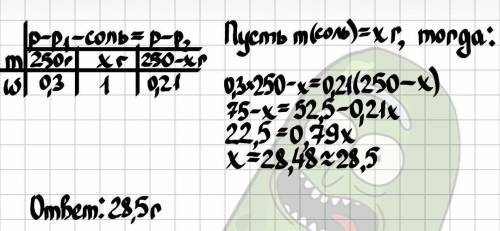 р-р₁-соль=р-р₂
m 250г xг 250-xг
ω 0,3 1 0,21
Пусть m(соль)=xг, тогда:
0,3*250-x=0,21(250-x)
75-x=52,5-0,21x
22,5=0,79x
x=28,48≈28,5
Ответ: 28,5г